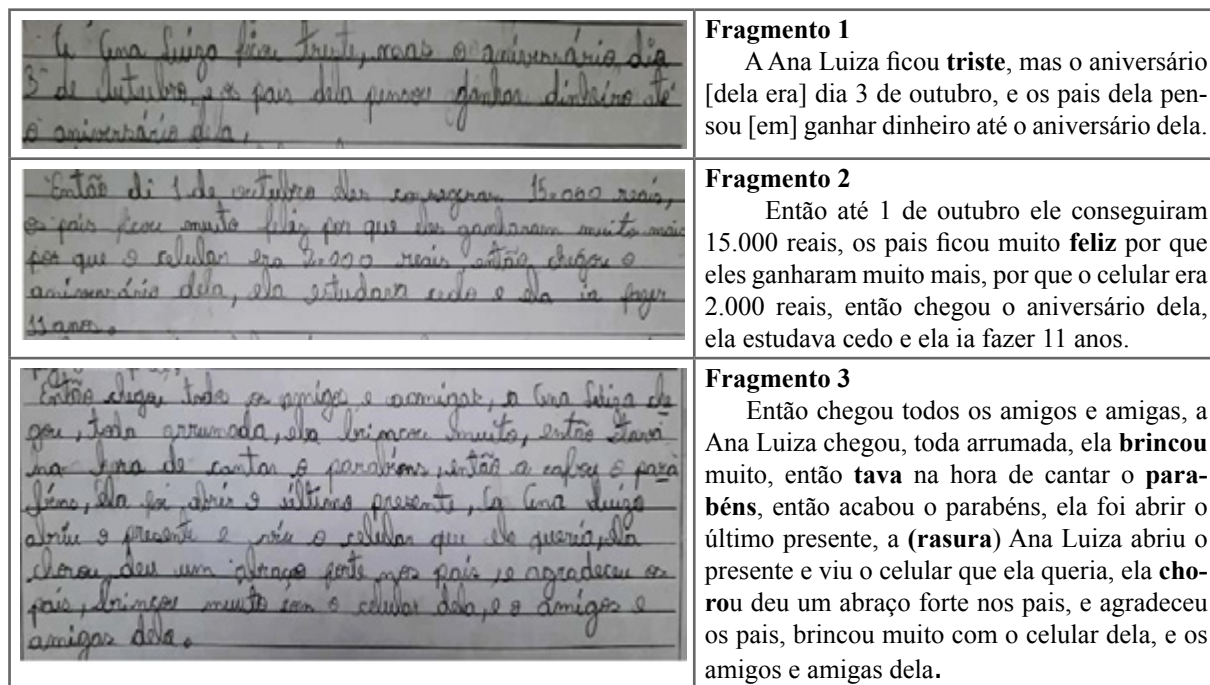 A Ana Luiza ficou triste, mas o aniversário dia
3 de outubro, e os pais dela pensou ganhar dinheiro até
o aniversário dela,
Fragmento 1
A Ana Luiza ficou triste, mas o aniversário
[dela era] dia 3 de outubro, e os pais dela pen-
sou [em] ganhar dinheiro até o aniversário dela.
Então di 1 de outubro eles conseguiram 15.000 reais,
os pais ficou muito feliz por que eles ganharam muito mais
por que o celular era 2.000 reais, então chegou o
aniversário dela, ela estudava cedo e ela ia fazer
11 anos.
Fragmento 2
Então até 1 de outubro ele conseguiram
15.000 reais, os pais ficou muito feliz por que
eles ganharam muito mais, por que o celular era
2.000 reais, então chegou o aniversário dela,
ela estudava cedo e ela ia fazer 11 anos.
Então chegou todos os amigos e amigas, a Ana Luiza che
gou, toda arrumada, ela brincou muito, então tava
na hora de cantar o parabéns, então a cabou o para
béns, ela foi abrir o último presente, a Ana Luiza
abriu o presente e viu o celular que ela queria, ela
chorou deu um abraço forte nos pais, e agradeceu os
pais, brincou muito com o celular dela, e o amigos e
amigas dela.
Fragmento 3
Então chegou todos os amigos e amigas, a
Ana Luiza chegou, toda arrumada, ela brincou
muito, então tava na hora de cantar o para-
béns, então acabou o parabéns, ela foi abrir o
último presente, a (rasura) Ana Luiza abriu o
presente e viu o celular que ela queria, ela cho-
rou deu um abraço forte nos pais, e agradeceu
os pais, brincou muito com o celular dela, e os
amigos e amigas dela.